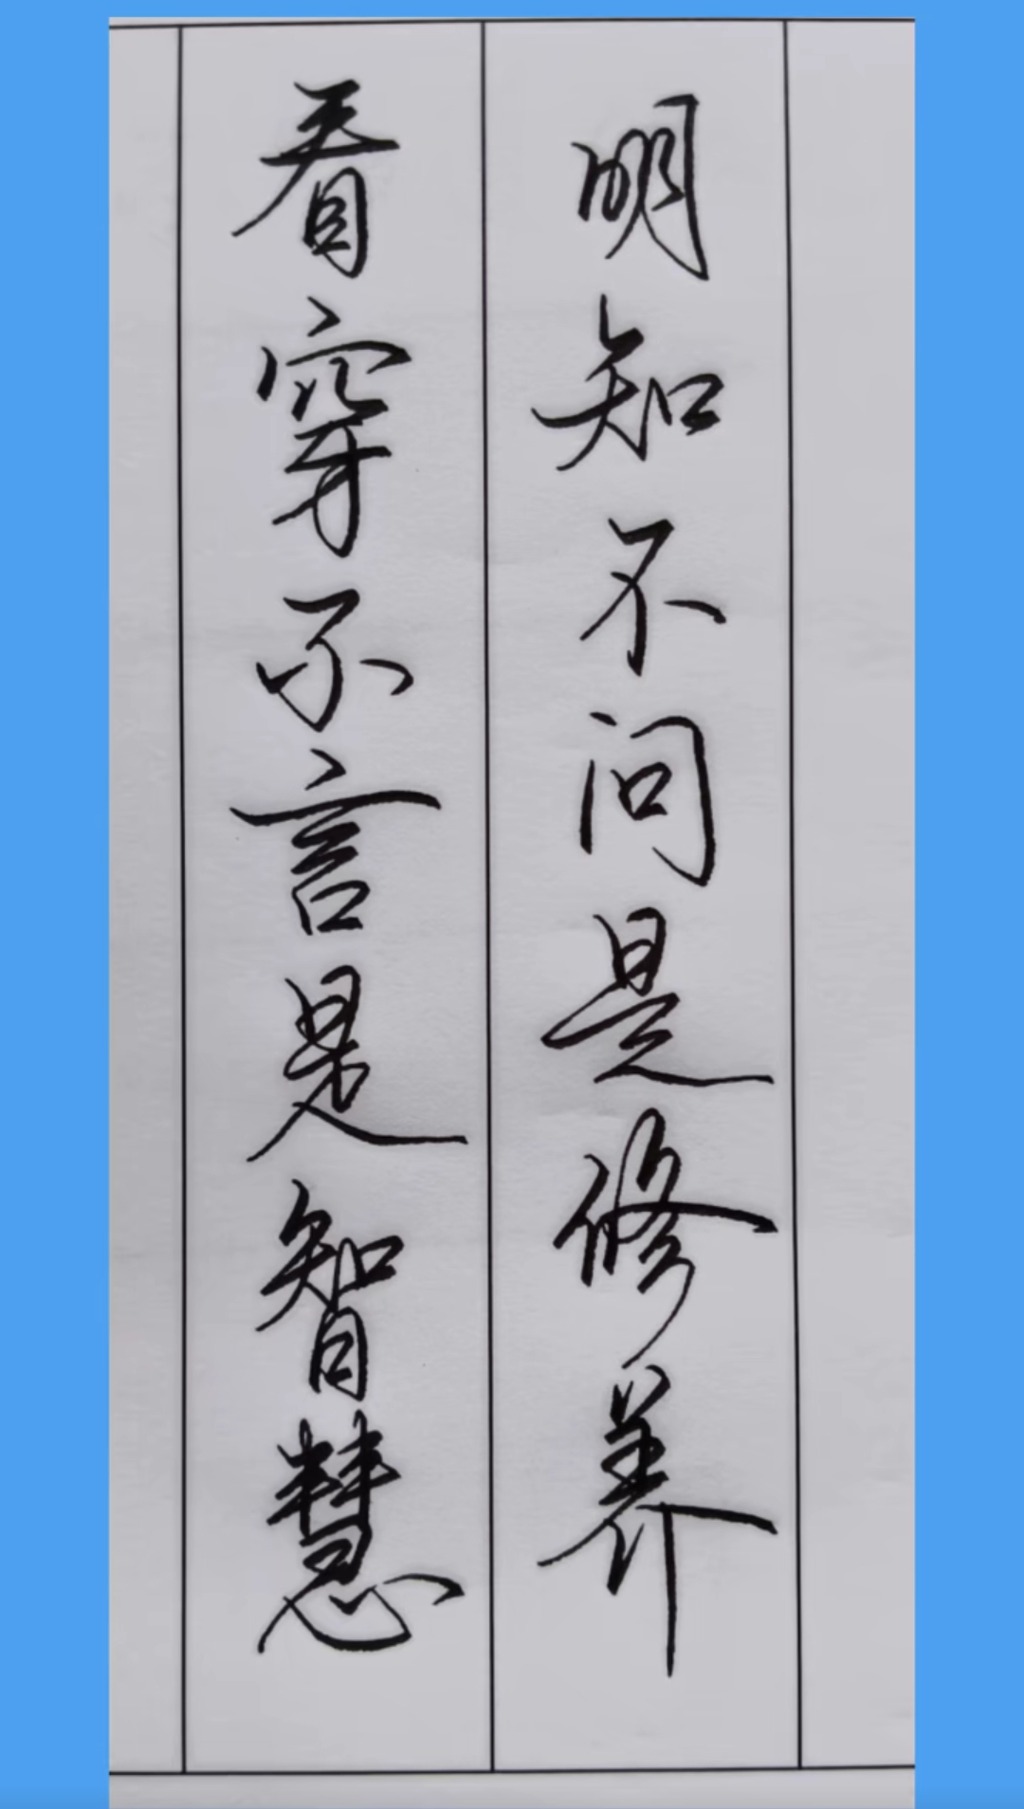 明知不问是修养
看穿不言是智慧